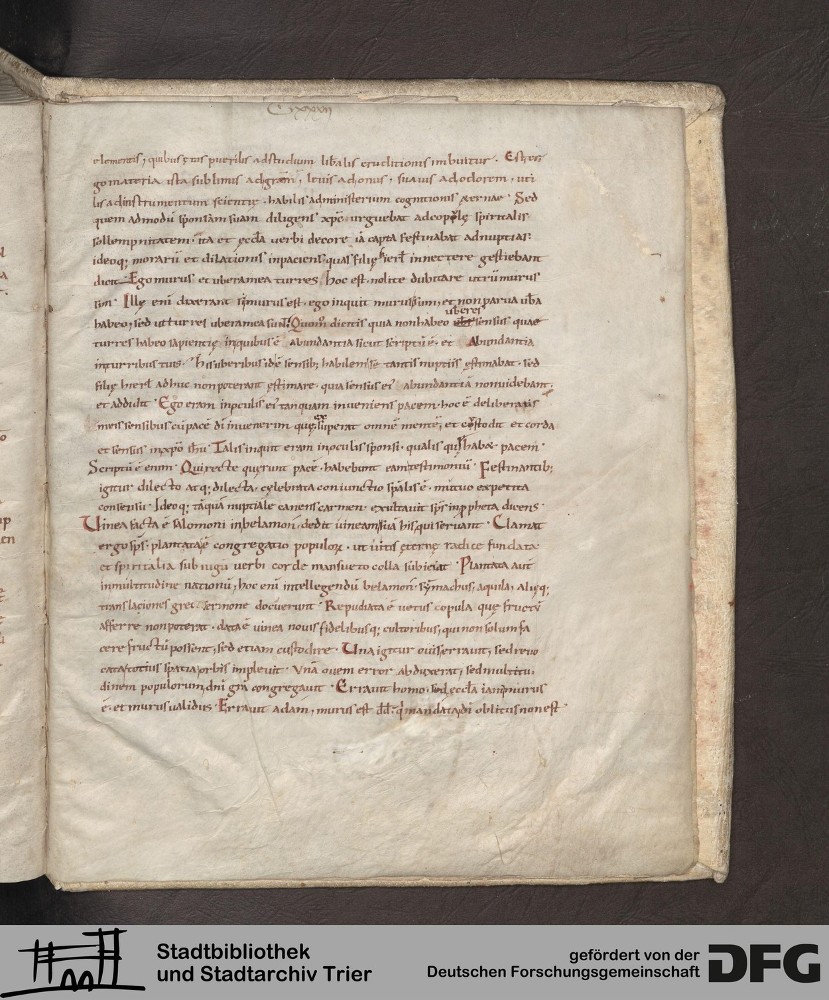 Cxxxii
elementis, quibus sensus puerilis ad studium libalis eruditionis imbuitur. Est er
go materia ista sublimis ad gram, levis ad onus, suavis ad odorem, uti
lis ad instrumentum scientię, habilis ad ministerium cognitionis aeternae. Sed
quem admodū sponsam suam diligens xpc urguebat ad copulę spiritalis
sollempnitatem, ita et ęccła verbi decore iā capta festinabat ad nuptias.
ideoq; morarū et dilationis inpaciens quas filię hierł innectere gestiebant
dicit. Ego murus et ubera mea turres, hoc est nolite dubitare utrū murus
sim. Illę enī dixerant si murus est, ego inquit murus sum, et non parva uba
habeo, sed ut turres ubera mea sunt. Quom̄ dicitis quia non habeo uberes sensus quae
turres habeo sapientię in quibus ē abundantia sicut scriptū ē. et Abundantia
in turribus tuis. His uberibus id ē sensib; habilem se tantis nuptiis ęstimabat. sed
filię hierł adhuc non poterant ęstimare, quia sensus ei' abundantiā non videbant.
et addidit. Ego eram in oculis ei' tanquam inveniens pacem, hoc ē deliberatis
meis sensibus cū pace dī invenerim quę exsuperat omnē mentē, et custodit et corda
et sensus in xpo ihu. Talis inquit eram in oculis sponsi, qualis qui habeat pacem.
Scriptū ē enim. Qui recte quęrunt pacē, habebunt eam testimoniū. Festinantib;
igitur dilecto atq; dilecta, celebrata coniunctio spālis ē, mutuo expetita
consensu. Ideoq; tāquā nuptiale canens carmen, exultavit sps in ppheta dicens.
Uinea facta ē salomoni in belamon, dedit uineam suā his qui servant. Clamat
ergo sps, plantata ē congregatio populor, ut vitis ęternę radice fundata
et spiritalia sub iuga verbi corde mansueto colla subiciat. Plantata aut
in multitudine nationū, hoc enī intellegendū belamon symachus, aquila, alięq;
translaciones greco sermone docuerunt. Repudiata ē vetus copula quę fructū
afferre non poterat, data ē vinea novis fidelibusq; cultoribus, qui non solum fa
cere fructū possent, sed etiam custodire. Una igitur ovis erravit, sed revo
cata totius spatia orbis implevit. Unā ovem error abduxerat, sed multitu
dinem populorum dni gra congregavit. Erravit homo, sed ęccła iam murus
ē, et murus validus. Erravit adam, murus est dd. qi mandata di oblitus non est.
Stadtbibliothek
und Stadtarchiv Trier
gefördert von der
Deutschen Forschungsgemeinschaft
DFG